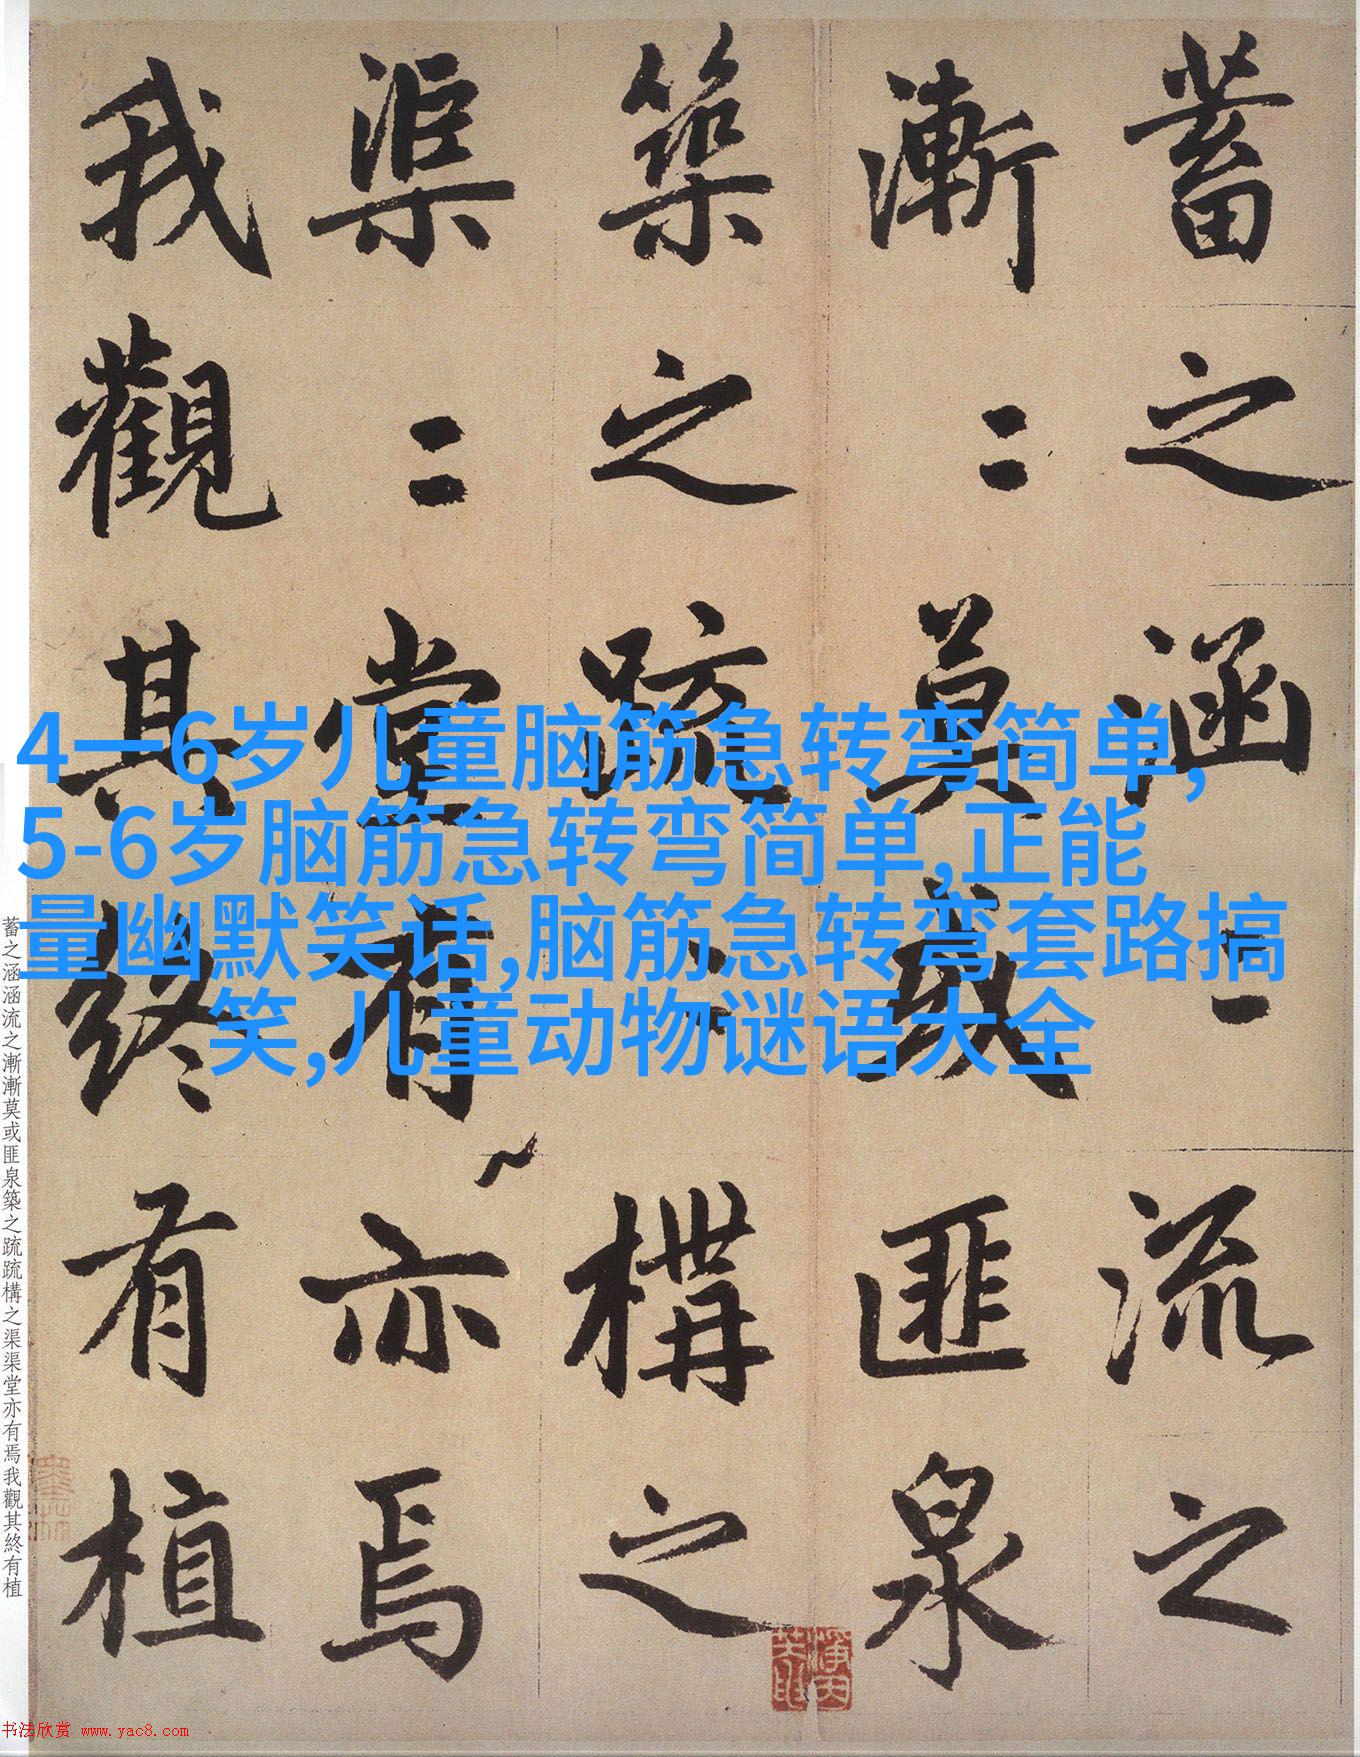 蓄之涵〻流之
漸〻莫或匪泉
築之疏〻構之
渠〻堂有亦焉
我觀其終有植
4一6岁儿童脑筋急转弯简单,
5-6岁脑筋急转弯简单,正能
量幽默笑话,脑筋急转弯套路搞
笑,儿童动物谜语大全
蓄之涵涵流之漸漸莫或匪泉築之疏疏構之渠渠堂亦有焉我觀其終有植
书法欣赏 www.yac8.com